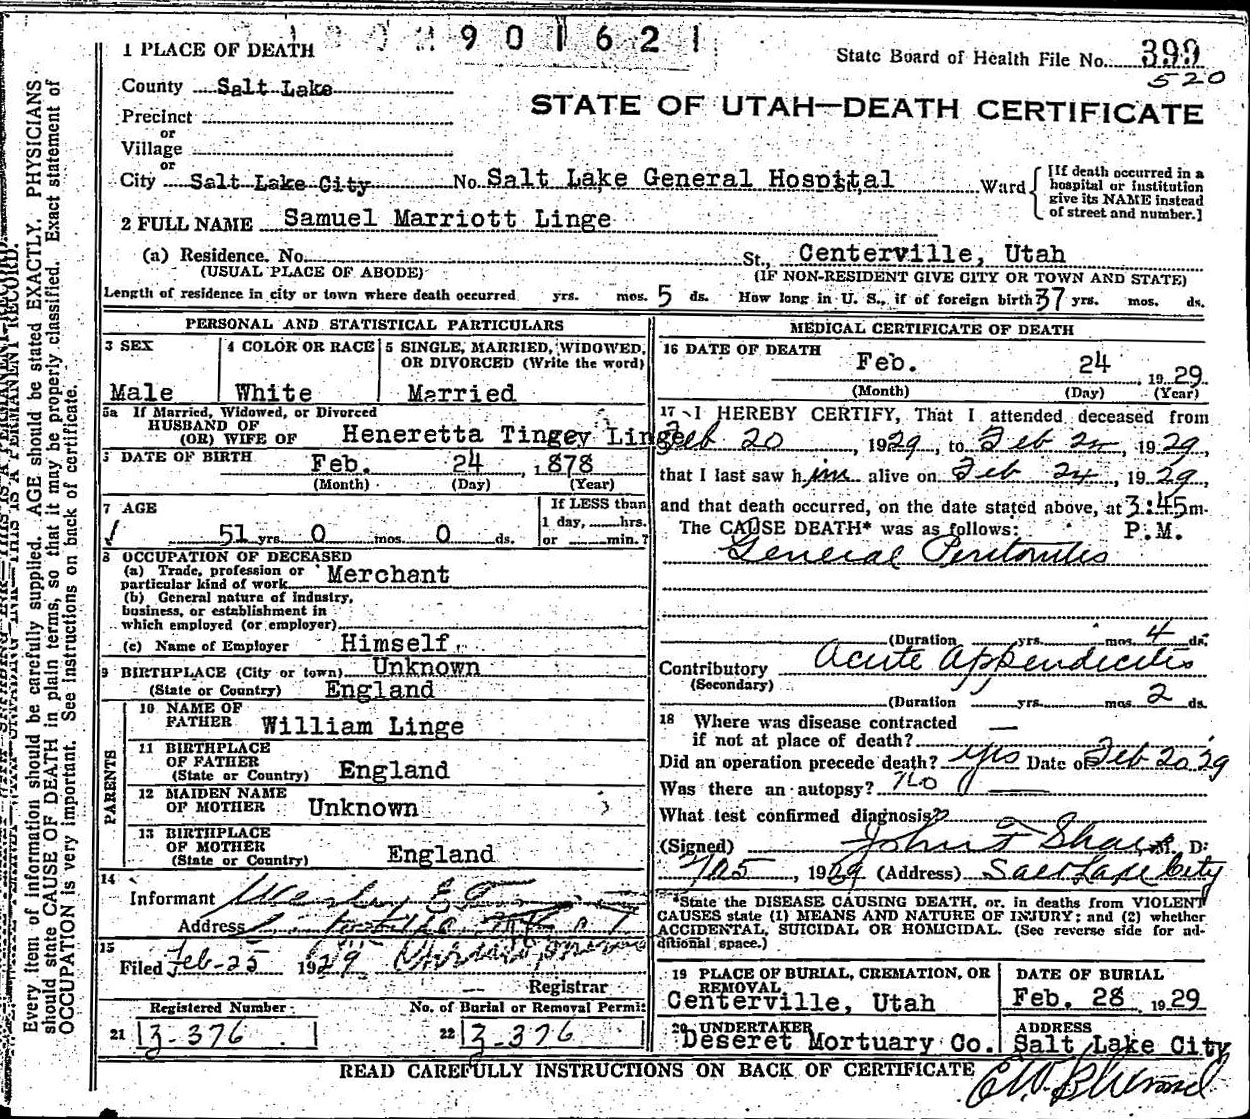 901621
1 PLACE OF DEATH
State Board of Health File No. 399
520
County Salt Lake
STATE OF UTAH—DEATH CERTIFICATE
Precinct
or
Village
or
City Salt Lake City No. Salt Lake General Hospital, Ward
[If death occurred in a
hospital or institution
give its NAME instead
of street and number.]
2 FULL NAME Samuel Marriott Linge
(a) Residence. No. St., Centerville, Utah
(USUAL PLACE OF ABODE) (IF NON-RESIDENT GIVE CITY OR TOWN AND STATE)
Length of residence in city or town where death occurred yrs. mos. 5 ds. How long in U. S., if of foreign birth 37 yrs. mos. ds.
PERSONAL AND STATISTICAL PARTICULARS
3 SEX 4 COLOR OR RACE 5 SINGLE, MARRIED, WIDOWED,
OR DIVORCED (Write the word)
Male White Married
5a If Married, Widowed, or Divorced
HUSBAND OF
(OR) WIFE OF Heneretta Tingey Linge
6 DATE OF BIRTH Feb. 24 1878
(Month) (Day) (Year)
7 AGE If LESS than
1 day, hrs.
51 yrs. 0 mos. 0 ds. or min.?
8 OCCUPATION OF DECEASED
(a) Trade, profession or
particular kind of work Merchant
(b) General nature of industry,
business, or establishment in
which employed (or employer)
(c) Name of Employer Himself
9 BIRTHPLACE (City or town) Unknown
(State or Country) England
PARENTS
10 NAME OF
FATHER William Linge
11 BIRTHPLACE
OF FATHER
(State or Country) England
12 MAIDEN NAME
OF MOTHER Unknown
13 BIRTHPLACE
OF MOTHER
(State or Country) England
14
Informant
Address
15
Filed Feb-25 1929
Registrar
Registered Number No. of Burial or Removal Permit
21 3-376 22 3-376
MEDICAL CERTIFICATE OF DEATH
16 DATE OF DEATH
Feb. 24, 1929
(Month) (Day) (Year)
17 I HEREBY CERTIFY, That I attended deceased from
Feb 20, 1929, to Feb 24, 1929,
that I last saw him alive on Feb 24, 1929,
and that death occurred, on the date stated above, at 3:45 m.
The CAUSE DEATH* was as follows: P.M.
General Peritonitis
(Duration yrs. mos. 4 ds.
Contributory Acute Appendicitis
(Secondary)
(Duration yrs. mos. 2 ds.
18 Where was disease contracted
if not at place of death? —
Did an operation precede death? yes Date of Feb 20 29
Was there an autopsy? no
What test confirmed diagnosis?
(Signed) John F Sharp M. D.
2/25, 1929 (Address) Salt Lake City
*State the DISEASE CAUSING DEATH, or, in deaths from VIOLENT
CAUSES state (1) MEANS AND NATURE OF INJURY; and (2) whether
ACCIDENTAL, SUICIDAL OR HOMICIDAL. (See reverse side for ad-
ditional space.)
19 PLACE OF BURIAL, CREMATION, OR
REMOVAL
Centerville, Utah
DATE OF BURIAL
Feb. 28 1929
20 UNDERTAKER
Deseret Mortuary Co.
ADDRESS
Salt Lake City
READ CAREFULLY INSTRUCTIONS ON BACK OF CERTIFICATE
THIS IS A PERMANENT RECORD.
Every item of information should be carefully supplied. AGE should be stated EXACTLY. PHYSICIANS
should state CAUSE OF DEATH in plain terms, so that it may be properly classified. Exact statement of
OCCUPATION is very important. See instructions on back of certificate.